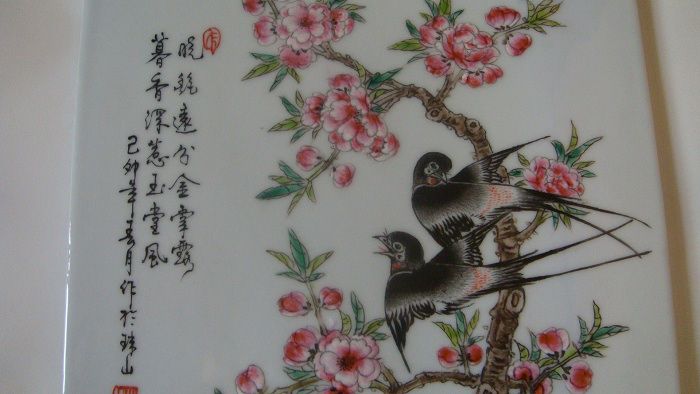 晓艳远分金掌露
暮香深惹玉堂风
己卯年春月作於珠山